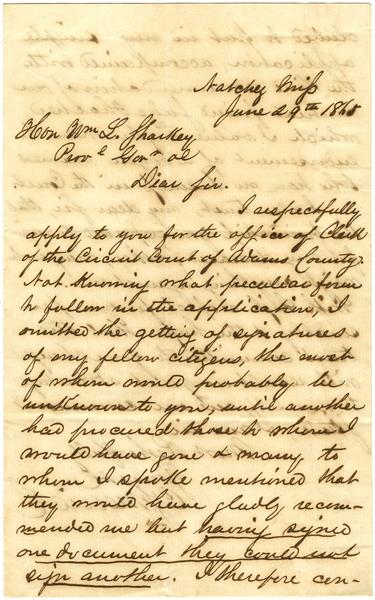 Natchez Miss
June 29th 1865
Hon Wm L. Sharkey
Provl Govr &c
Dear Sir.
I respectfully
apply to you for the office of Clerk
of the Circuit Court of Adams County.
Not Knowing what peculiar form
to follow in the application, I
omitted the getting of signatures
of my fellow citizens, the most
of whom would probably be
unknown to you, until another
had procured those to whom I
would have gone & many to
whom I spoke mentioned that
they would have gladly recom-
mended me but having signed
one document they could not
sign another. I therefore con-